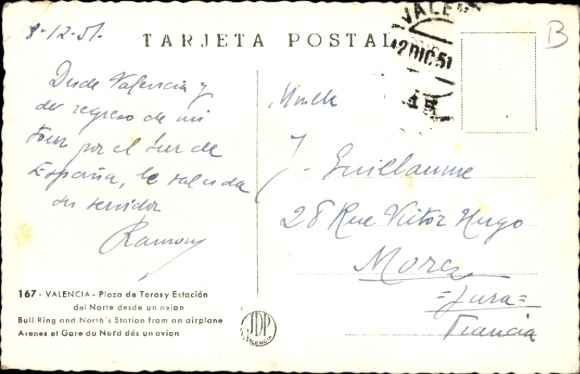 8-12-51.
TARJETA POSTAL
VALEN
12 DIC.51
B
Desde Valencia y
de regreso de mi
tour por el Sur de
España, le saluda
su servidor
Ramon
Melle
J. Guillaume
28 Rue Victor Hugo
Morez
=Jura=
Francia
167 - VALENCIA - Plaza de Toros y Estación
del Norte desde un avion
Bull Ring and North's Station from an airplane
Arenes et Gare du Nord dés un avion
JDP
VALENCIA